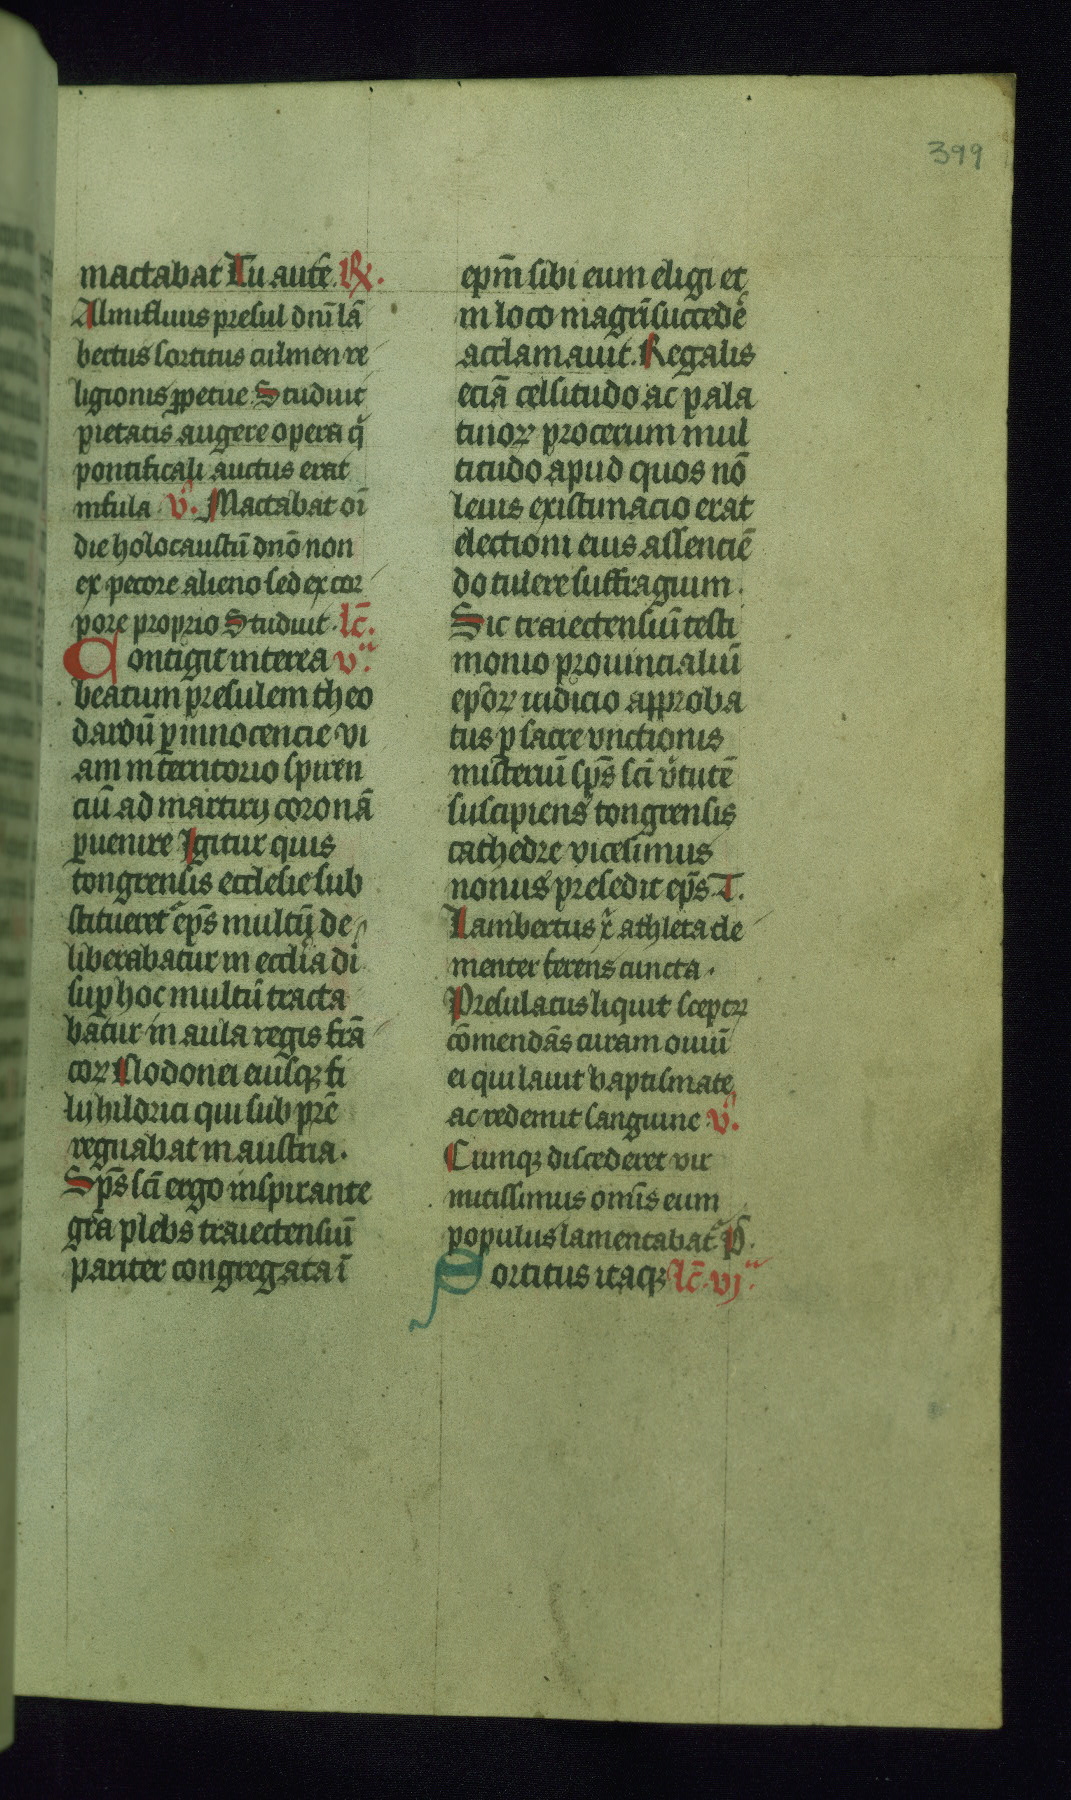 399
mactabat Tu autē. ℟.
Almifluus presul dn̄i lā
bertus sortitus culmen re
ligionis ꝑpetue. Studuit
pietatis augere opera q̄
pontificali auctus erat
infula. v̄. Mactabat oī
die holocaustū dn̄o non
ex pecore alieno sed ex cor
pore proprio Studuit. lc̄.
Contigit interea v.
beatum presulem theo
dardū ꝑ innocencie vi
am in territorio spiren
ciū ad martirij coronā
ꝑuenire Igitur quis
tongrensis ecclesie sub
stitueret ep̄s multū de
liberabatur in eccl̄ia di
suꝑ hoc multū tracta
batur in aula regis frā
coꝝ clodouei eiusqꝫ fi
lij hildrici qui sub pr̄e
regnabat in austria.
Sp̄s sc̄i ergo inspirante
gr̄a plebs traiectensiū
pariter congregata ī
ep̄m sibi eum eligi et
in loco magr̄i succedē
acclamauit. Regalis
eciā celsitudo ac pala
tinoꝝ procerum mul
titudo apud quos nō
leuis existimacio erat
electioni eius assenciē
do tulere suffragium.
Sic traiectensiū testi
monio prouincialiū
ep̄oꝝ iudicio approba
tus ꝑ sacre vnctionis
misteriū sp̄s sc̄i v̓tutē
suscipiens tongrensis
cathedre vicesimus
nonus presedit ep̄s T.
Lambertus x̄ athleta cle
menter ferens cuncta.
Presulatus liquit sceptꝝ
cōmendās curam ouiū
ei qui lauit baptismate
ac redemit sanguine. v̄.
Cumqꝫ discederet vir
mitissimus omīs eum
populus lamentabat̄ P.
Sortitus itaqꝫ lc̄. vj.